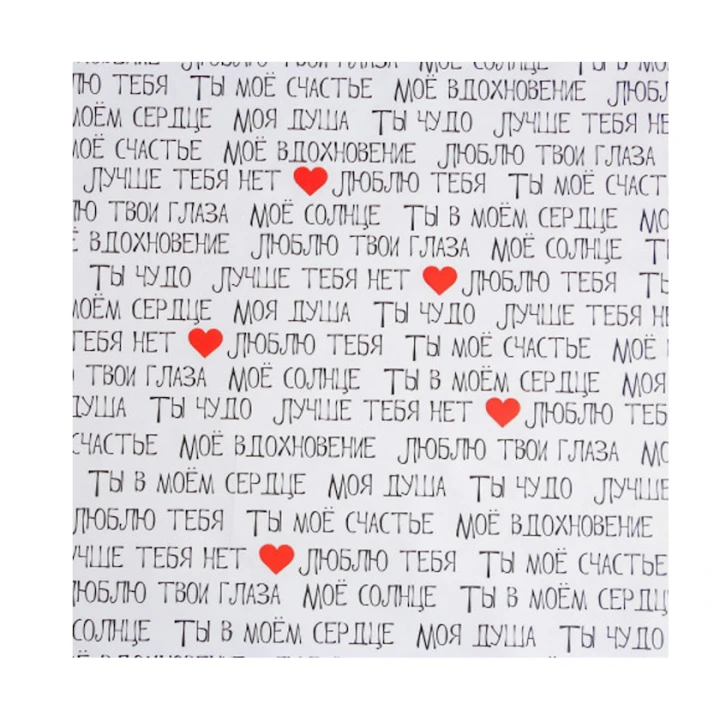 ЛЮБЛЮ ТВОИ ГЛАЗА МОЁ СОЛНЦЕ ТЫ В МО
ЛЮ ТЕБЯ ТЫ МОЁ СЧАСТЬЕ МОЁ ВДОХНОВЕНИЕ ЛЮБЛ
МОЁМ СЕРДЦЕ МОЯ ДУША ТЫ ЧУДО ЛУЧШЕ ТЕБЯ НЕ
МОЁ СЧАСТЬЕ МОЁ ВДОХНОВЕНИЕ ЛЮБЛЮ ТВОИ ГЛАЗА
ЛУЧШЕ ТЕБЯ НЕТ ЛЮБЛЮ ТЕБЯ ТЫ МОЁ СЧАСТ
Ю ТВОИ ГЛАЗА МОЁ СОЛНЦЕ ТЫ В МОЁМ СЕРДЦЕ МО
Ё ВДОХНОВЕНИЕ ЛЮБЛЮ ТВОИ ГЛАЗА МОЁ СОЛНЦЕ Т
ТЫ ЧУДО ЛУЧШЕ ТЕБЯ НЕТ ЛЮБЛЮ ТЕБЯ ТЫ
МОЁМ СЕРДЦЕ МОЯ ДУША ТЫ ЧУДО ЛУЧШЕ ТЕБЯ НЕ
ТЕБЯ НЕТ ЛЮБЛЮ ТЕБЯ ТЫ МОЁ СЧАСТЬЕ МОЁ
ТВОИ ГЛАЗА МОЁ СОЛНЦЕ ТЫ В МОЁМ СЕРДЦЕ МОЯ
ДУША ТЫ ЧУДО ЛУЧШЕ ТЕБЯ НЕТ ЛЮБЛЮ ТЕБ
СЧАСТЬЕ МОЁ ВДОХНОВЕНИЕ ЛЮБЛЮ ТВОИ ГЛАЗА МО
ТЫ В МОЁМ СЕРДЦЕ МОЯ ДУША ТЫ ЧУДО ЛУЧШЕ
ЛЮБЛЮ ТЕБЯ ТЫ МОЁ СЧАСТЬЕ МОЁ ВДОХНОВЕНИЕ
УЧШЕ ТЕБЯ НЕТ ЛЮБЛЮ ТЕБЯ ТЫ МОЁ СЧАСТЬЕ
ЛЮБЛЮ ТВОИ ГЛАЗА МОЁ СОЛНЦЕ ТЫ В МОЁМ СЕРДЦ
СОЛНЦЕ ТЫ В МОЁМ СЕРДЦЕ МОЯ ДУША ТЫ ЧУДО